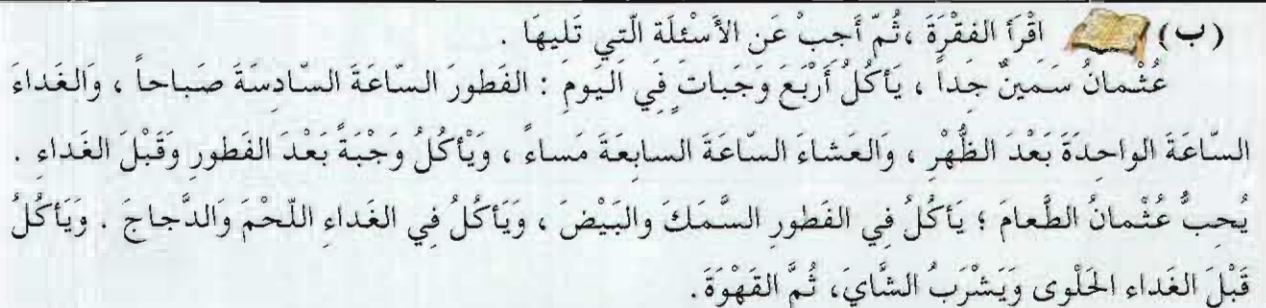 (ب) اقْرَأ الفقْرَةَ ،ثُمّ أَجبْ عَن الأَسْئلَة الّتِي تَليهَا .
عُثْمانُ سَمينٌ جداً ، يَأكُلُ أَرْبَعَ وَجَباتٍ فِي اليَومِ : الفَطورَ السّاعَةَ السّادِسَةَ صَباحاً ، وَالغَداءَ
السّاعَةَ الواحِدَةَ بَعْدَ الظُّهْرِ ، وَالعَشاءَ السّاعَةَ السابِعَةَ مَساءً ، وَيْأكُلُ وَجْبَةً بَعْدَ الفَطورِ وقَبْلَ الغَداءِ .
يُحبُّ عُثْمانُ الطَّعامَ ؛ يَأكُلُ فِي الفَطورِ السَّمَكَ والبَيْضَ ، وَيَأكُلُ فِي الغَداءِ اللّحْمَ وَالدَّجاجَ . وَيَأكُلُ
قَبْلَ الغَداءِ الحَلْوى وَيَشْرَبُ الشَّايَ، ثُمَّ القَهْوَةَ.